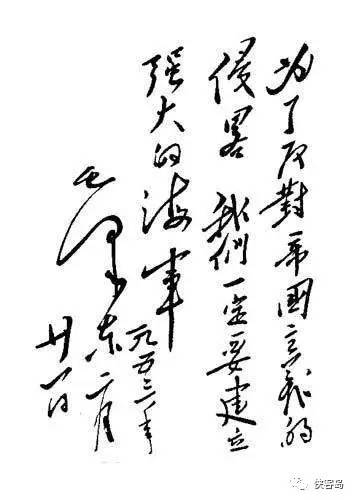 为了反對帝國主義的
侵畧 我們一定要建立
強大的海軍
毛澤東
一九五三年
二月
廿一日
侠客岛